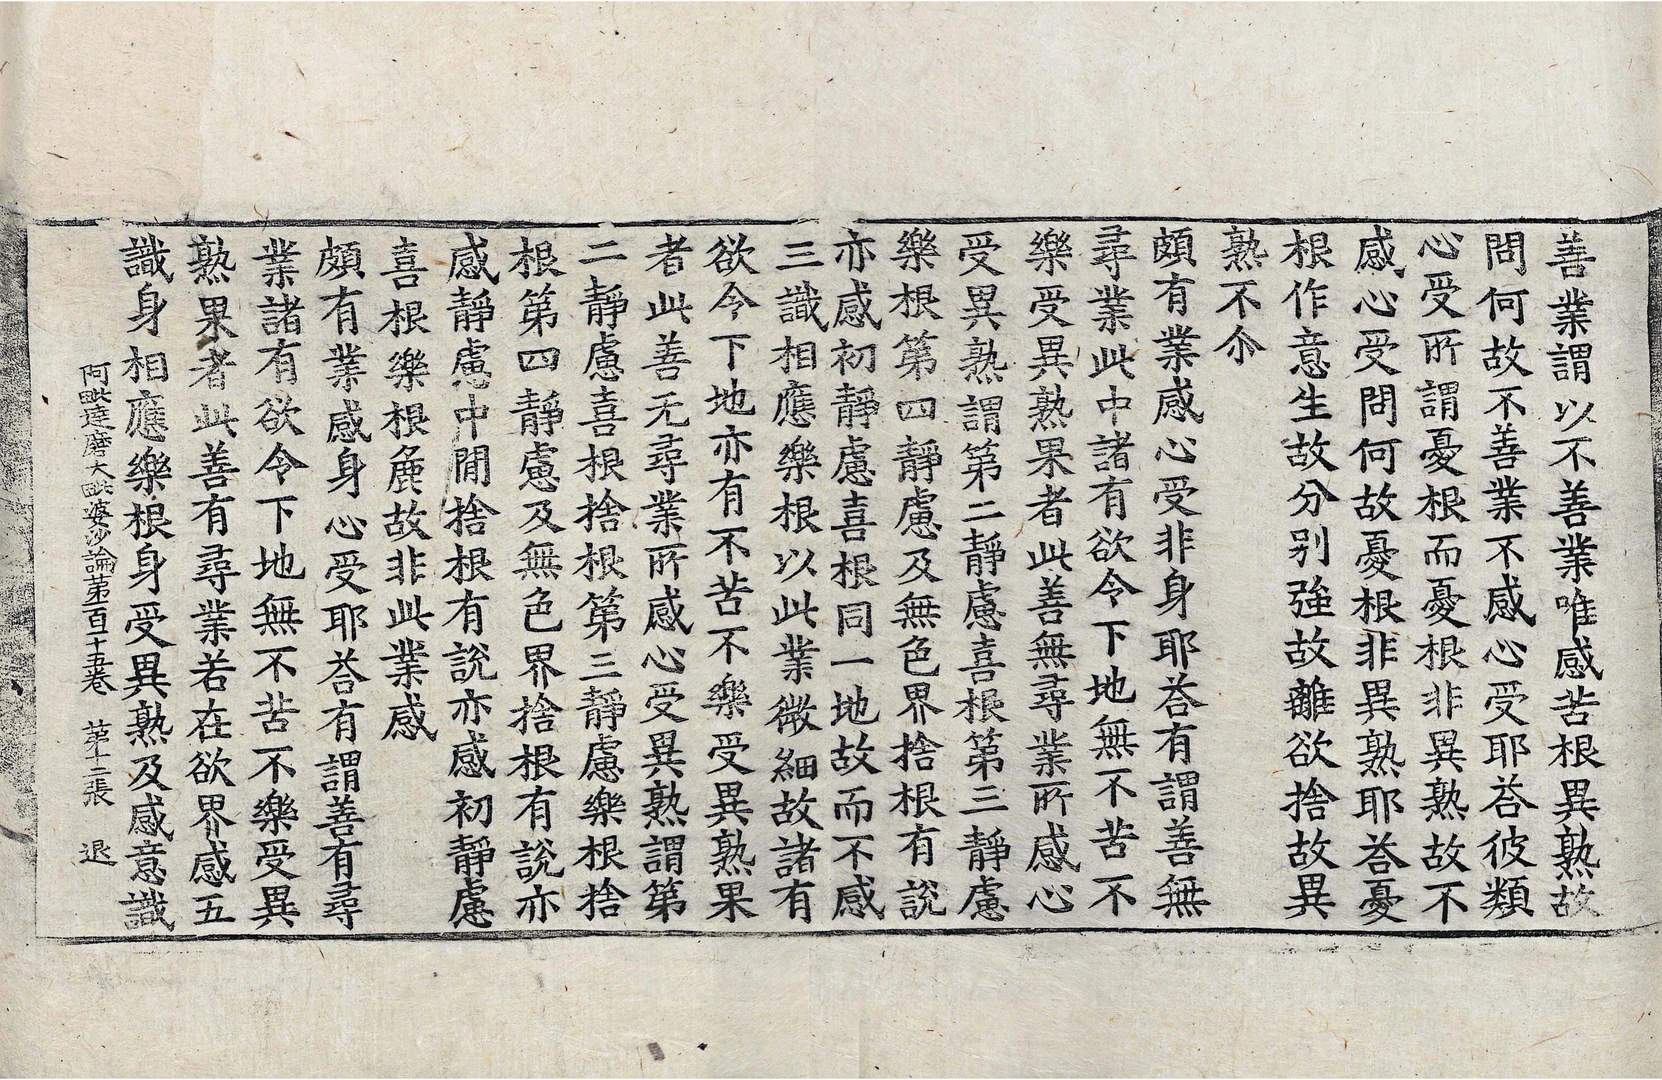 善業謂以不善業唯感苦根異熟故
問何故不善業不感心受耶荅彼類
心受所謂憂根而憂根非異熟故不
感心受問何故憂根非異熟耶荅憂
根作意生故分別強故離欲捨故異
熟不尒
頗有業感心受非身耶荅有謂善無
尋業此中諸有欲令下地無不苦不
樂受異熟果者此善無尋業所感心
受異熟謂第二靜慮喜根第三靜慮
樂根第四靜慮及無色界捨根有說
亦感初靜慮喜根同一地故而不感
三識相應樂根以此業微細故諸有
欲令下地亦有不苦不樂受異熟果
者此善无尋業所感心受異熟謂第
二靜慮喜根捨根第三靜慮樂根捨
根第四靜慮及無色界捨根有說亦
感靜慮中間捨根有說亦感初靜慮
喜根樂根麁故非此業感
頗有業感身心受耶荅有謂善有尋
業諸有欲令下地無不苦不樂受異
熟果者此善有尋業若在欲界感五
識身相應樂根身受異熟及感意識
阿毗達磨大毗婆沙論第一百十五卷　第十二張　退